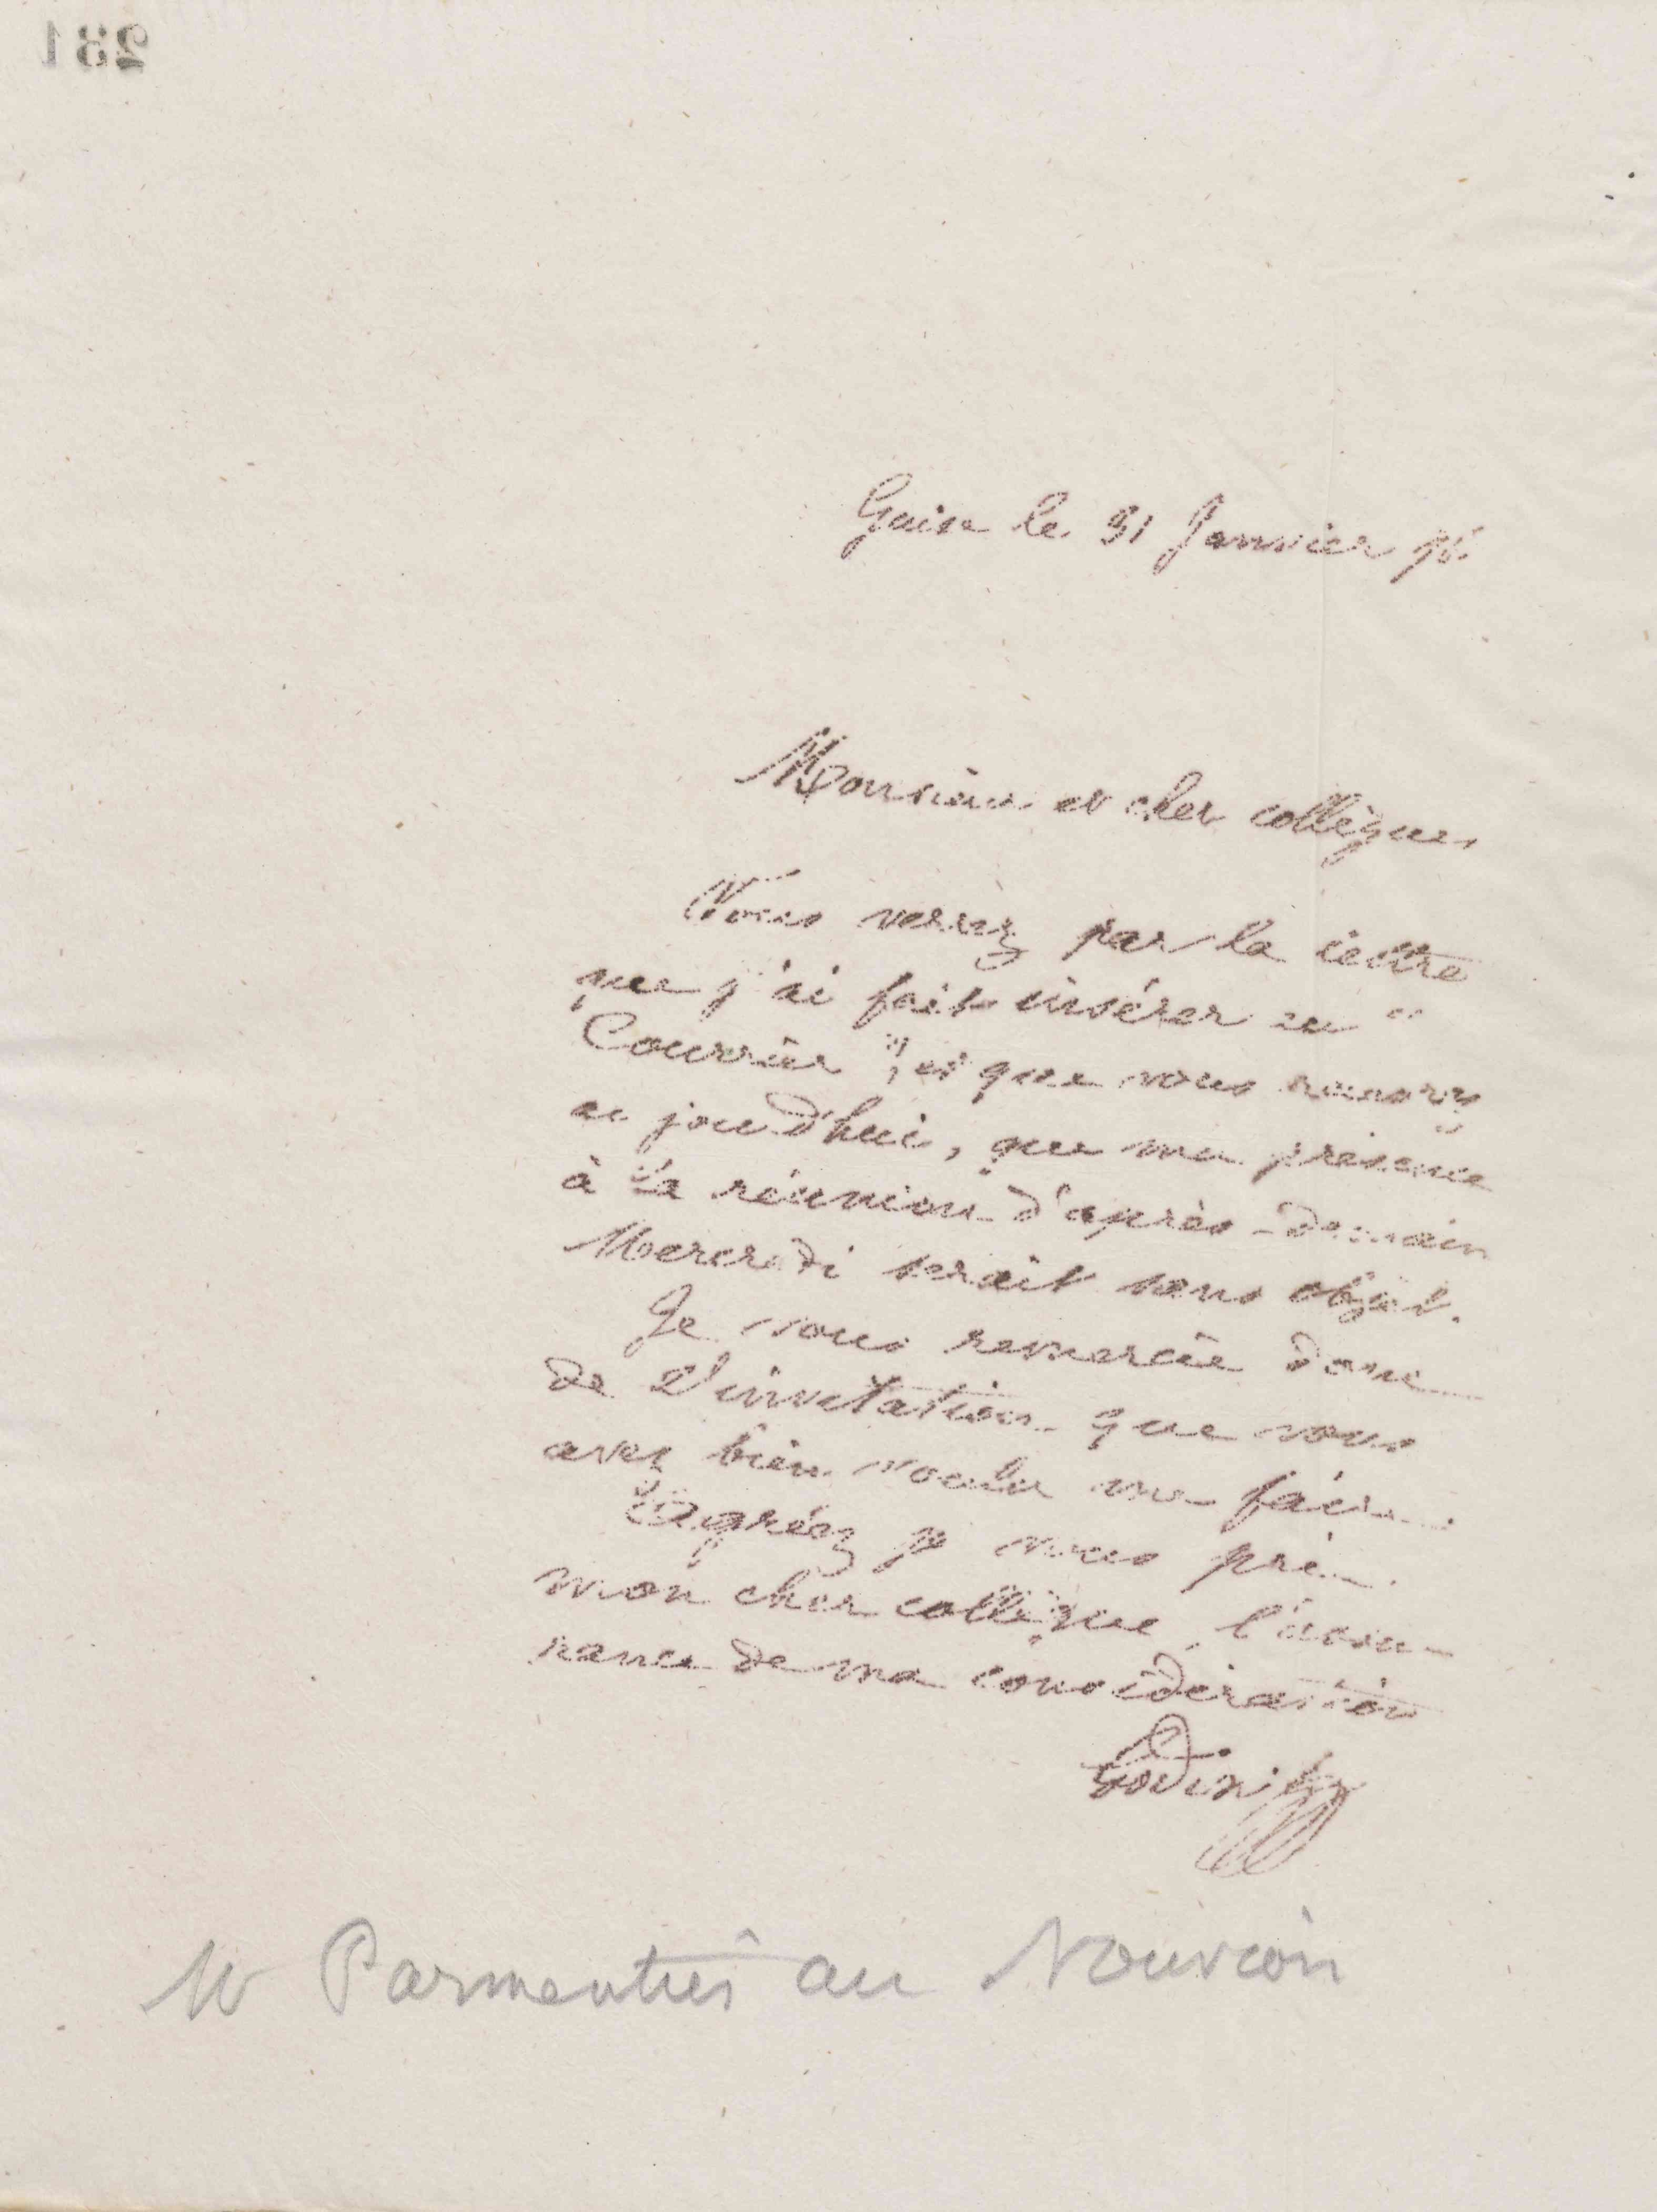 231
Guise le 31 Janvier 76
Monsieur et cher collègue,
Vous verrez par la lettre
que j'ai fait insérer au "
Courrier ", et que vous recevrez
au jourd'hui, que ma présence
à la réunion d'après-demain
Mercredi serait sans objet.
Je vous remercie donc
de l'invitation que vous
avez bien voulu me faire.
Agréez je vous prie
mon cher collègue, l'assu-
rance de ma considération
Godin
Mr Parmentier au Nouvion